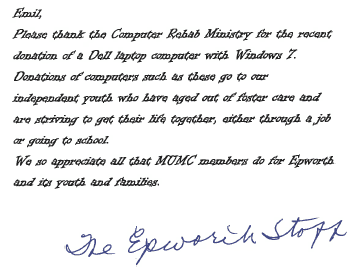 Emil,
Please thank the Computer Rehab Ministry for the recent
donation of a Dell laptop computer with Windows 7.
Donations of computers such as these go to our
independent youth who have aged out of foster care and
are striving to get their life together, either through a job
or going to school.
We so appreciate all that MUMC members do for Epworth
and its youth and families.
The Epworth Staff